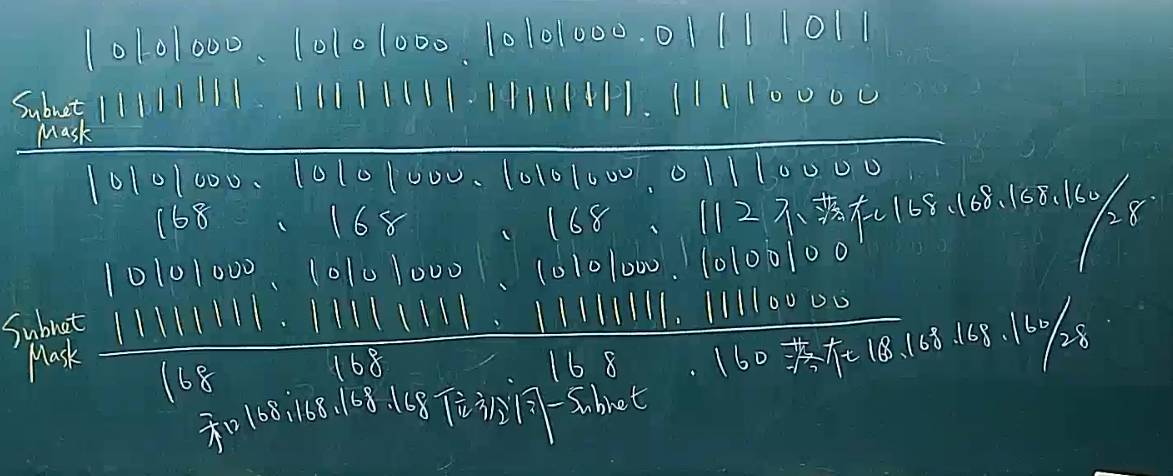 10101000.10101000.10101000.01111011
Subnet Mask 11111111.11111111.11111111.11110000
10101000.10101000.10101000.01110000
168.168.168.112不落在168.168.168.160/28
10101000.10101000.10101000.10100100
Subnet Mask 11111111.11111111.11111111.11110000
168.168.168.160落在168.168.168.160/28
和168.168.168.168位於同一Subnet